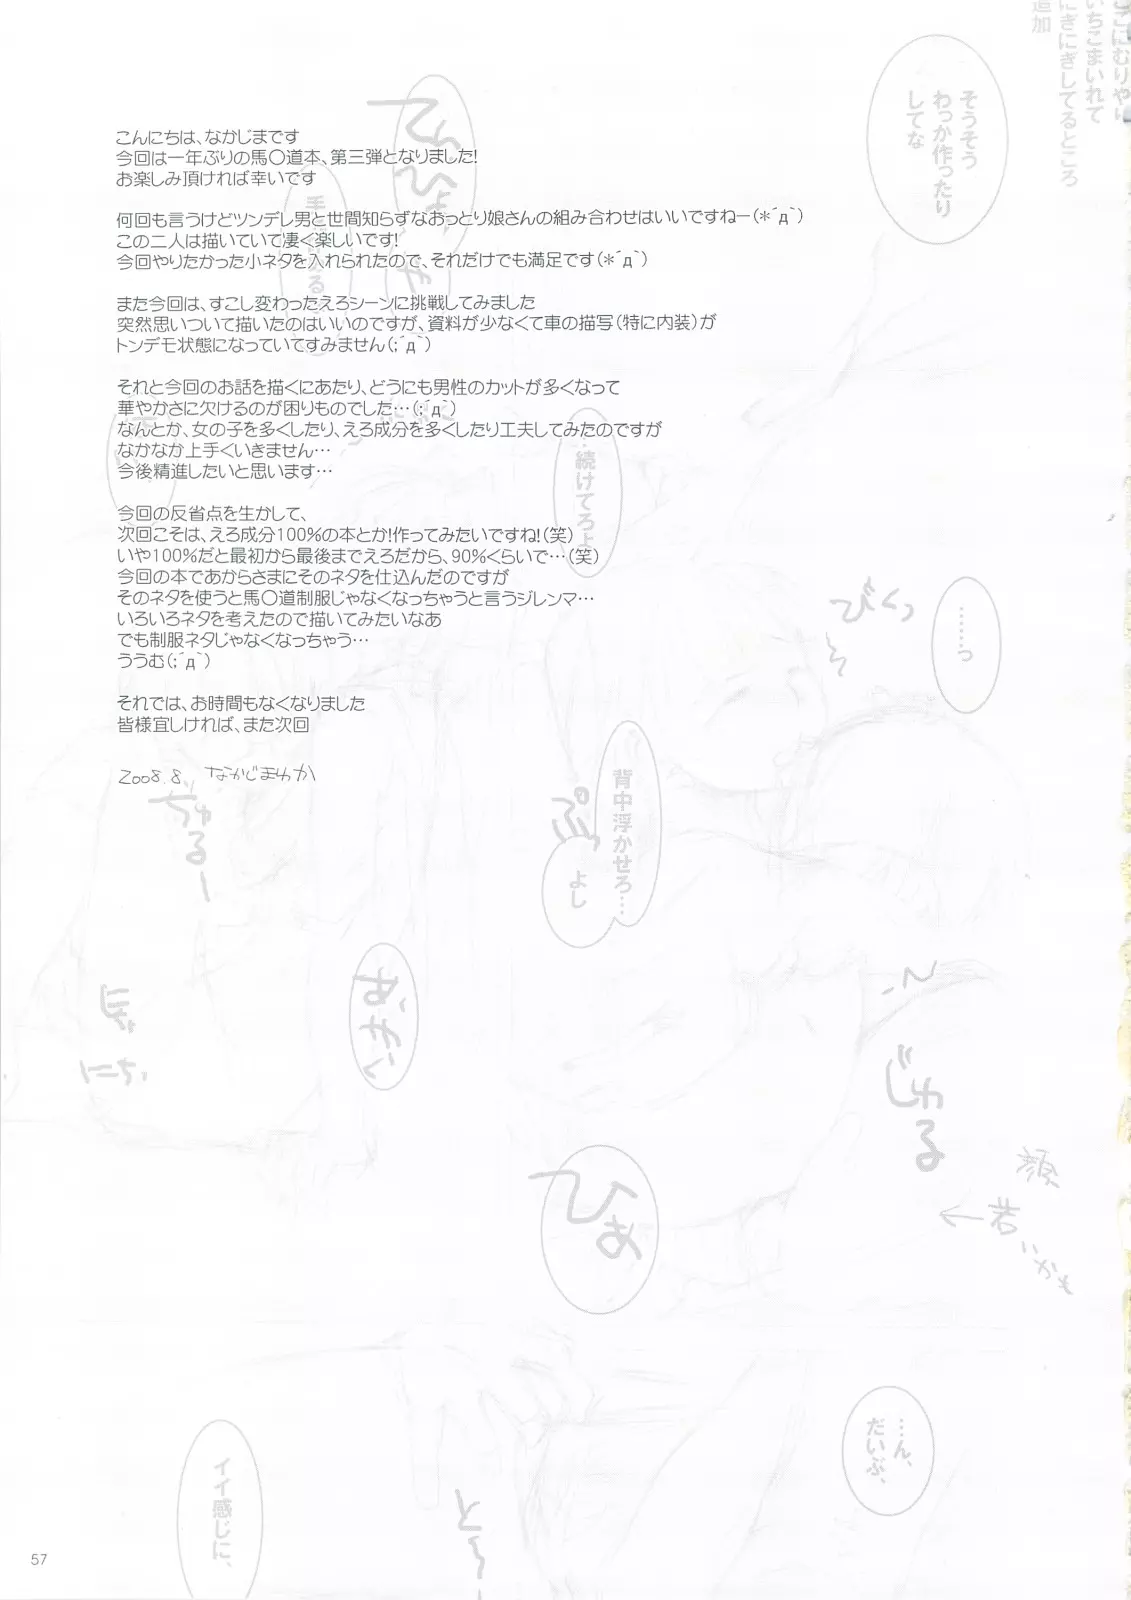 こんにちは、なかじまです
今回は一年ぶりの馬〇道本、第三弾となりました!
お楽しみ頂ければ幸いです
何回も言うけどツンデレ男と世間知らずなおっとり娘さんの組み合わせはいいですねー(*´д`)
この二人は描いていて凄く楽しいです!
今回やりたかった小ネタを入れられたので、それだけでも満足です(*´д`)
また今回は、すこし変わったえろシーンに挑戦してみました
突然思いついて描いたのはいいのですが、資料が少なくて車の描写(特に内装)が
トンデモ状態になっていてすみません(;´д`)
それと今回のお話を描くにあたり、どうにも男性のカットが多くなって
華やかさに欠けるのが困りものでした…(;´д`)
なんとか、女の子を多くしたり、えろ成分を多くしたり工夫してみたのですが
なかなか上手くいきません…
今後精進したいと思います…
今回の反省点を生かして、
次回こそは、えろ成分100%の本とか!作ってみたいですね!(笑)
いや100%だと最初から最後までえろだから、90%くらいで…(笑)
今回の本であからさまにそのネタを仕込んだのですが
そのネタを使うと馬〇道制服じゃなくなっちゃうと言うジレンマ…
いろいろネタを考えたので描いてみたいなあ
でも制服ネタじゃなくなっちゃう…
ううむ(;´д`)
それでは、お時間もなくなりました
皆様宜しければ、また次回
2008.8. なかじまゆか
ここにむりやり
いちこまいれて
にぎにぎしてるところ
追加
そうそう
わっか作ったり
してな
てん
ひょ
…続けてろよ
びくっ
……っ
背中浮かせろ…
よし
ぷっ
ちゅる
ー
ぎ
にち
じゅる
顔
←若いかも
ひあ
…ん、
だいぶ、
イイ感じに、
57